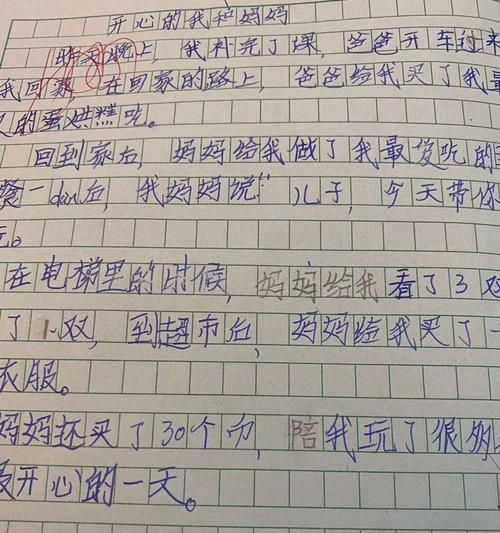 开心的我和妈妈
昨天晚上，我补完了课，爸爸开车过来
我回家，在回家的路上，爸爸给我买了我最
的蛋烘糕吃。
回到家后，妈妈给我做了我最爱吃的
餐一dan后，我妈妈说“儿子，今天带你
元。
在电梯里的时候，妈妈给我看了3双
了1双，到超市后，妈妈给我买了一
衣服。
妈妈还买了30个币，陪我玩了很多
最开心的一天。